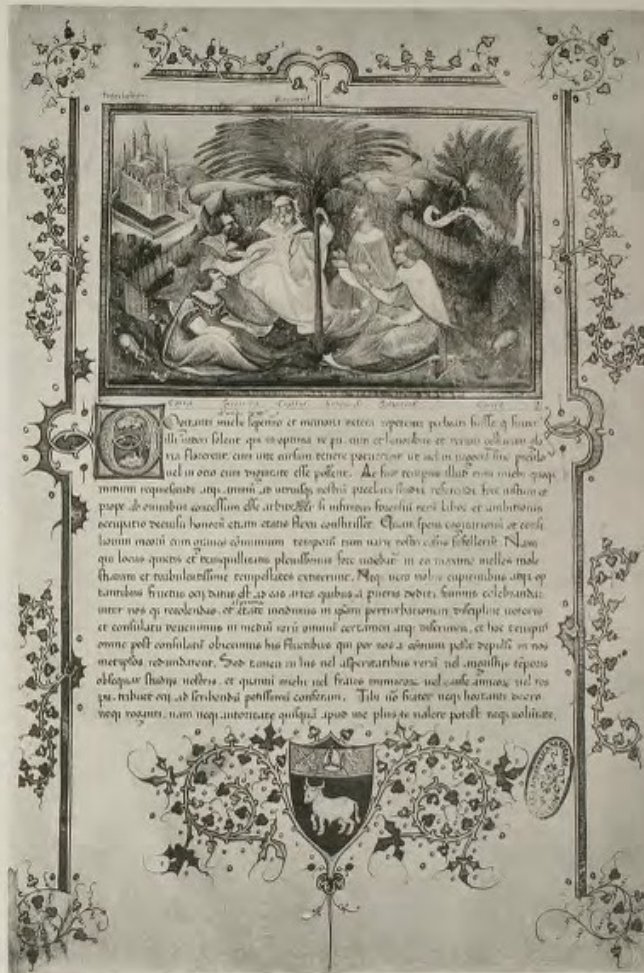 Cogitanti michi sepenumero et memoria vetera repetenti perbeati fuisse q̄ frater
illi videri solent qui in optima re pu. cum et honoribus et rerum gestarum glo
ria florerent. eum vite cursum tenere potuerunt ut vel in negocio sine periculo
vel in otio cum dignitate esse possent. Ac fuit tempus illud cum michi quoq;
initium requiescendi atq; animū ad utriusq; nostrū preclara studia referendi fore iustum et
prope ab omnibus concessum esse arbitrarer si infinitus forensiū rerū labor et ambitionis
occupatio decursu honorū etiam etatis flexu constitisset. Quam spem cogitationū et consi
liorum meorū cum graves cōmunium temporū tum varij nostri casus fefellerūt. Nam
qui locus quietis et tranquillitatis plenissimus fore videbat̄ in eo maxime molles mole
stiarum et turbulentissime tempestates extiterunt. Neq; vero nobis cupientibus atq; op
tantibus fructus ocij datus est ad eas artes quibus a pueris dediti fuimus celebrandas
inter nos q; recolendas.
et consulatu devenimus in mediū rerū omniū certamen atq; discrimen. et hoc tempus
omne post consulatū obiecimus his fluctibus qui per nos a cōmuni peste depulsi in nos
metipsos redundarent. Sed tamen in his vel asperitatibus rerū vel angustijs tēporis
obsequar studijs nostris. et quantū michi vel fraus inimicorū vel cause amicorū vel res
pu. tribuet ocij ad scribendū potissimū conferam. Tibi vero frater neq; hortanti deero
neq; roganti. nam neq; autoritate quisquā apud me plus te valere potest neq; volūtate.